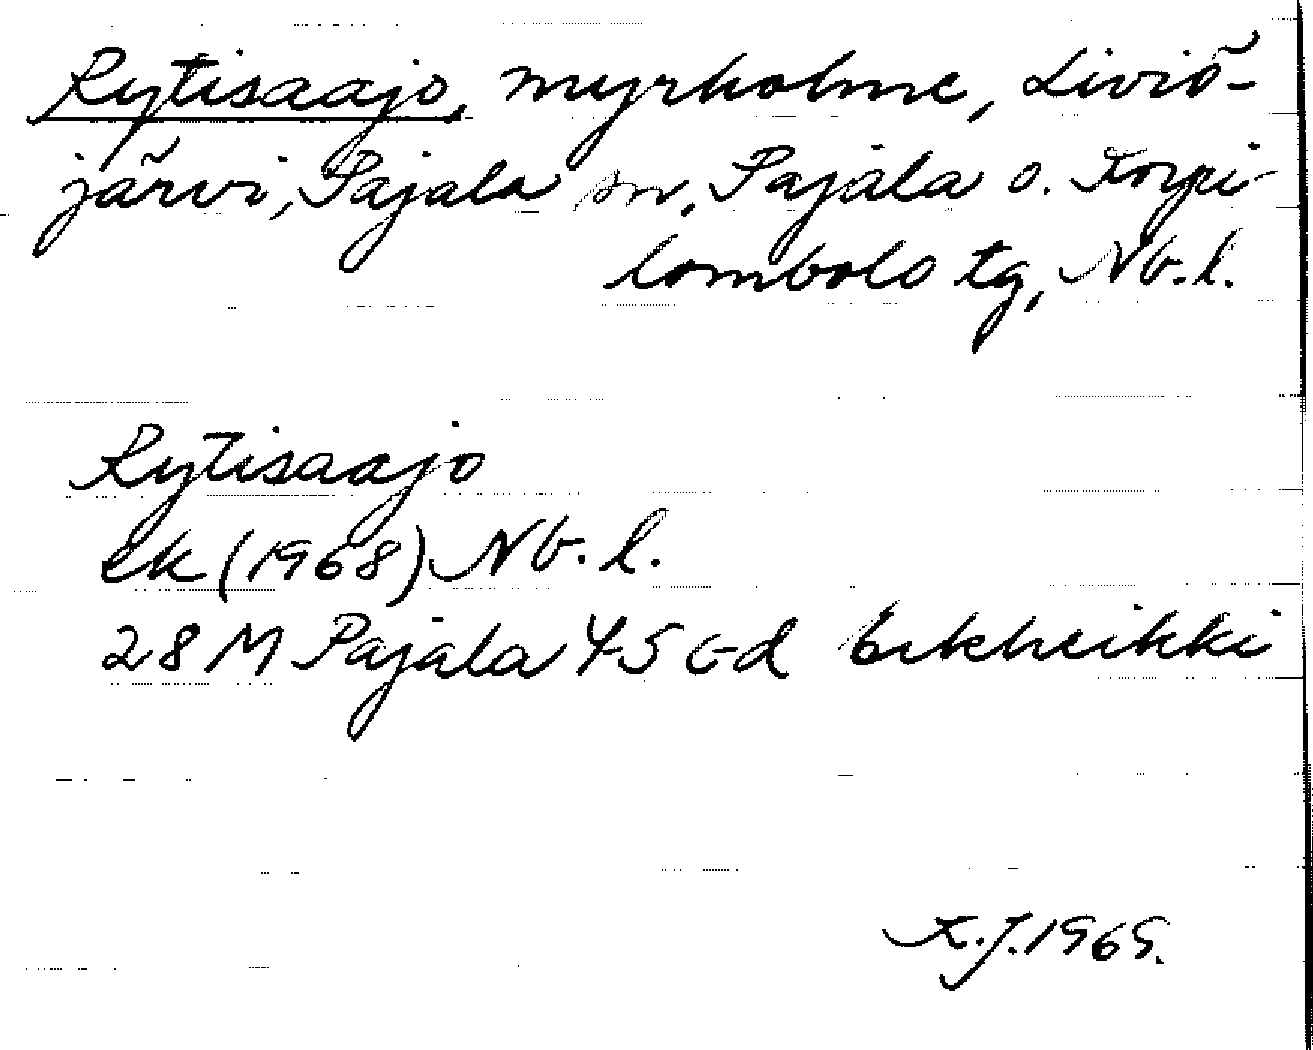 Rytisaajo, myrholme, Liviö-
järvi, Pajala sn, Pajala o. Korpi-
lombolo tg, Nb.l.
Rytisaajo
ek (1968) Nb.l.
28 M Pajala 45 c-d Erkheikki
K.J. 1969.